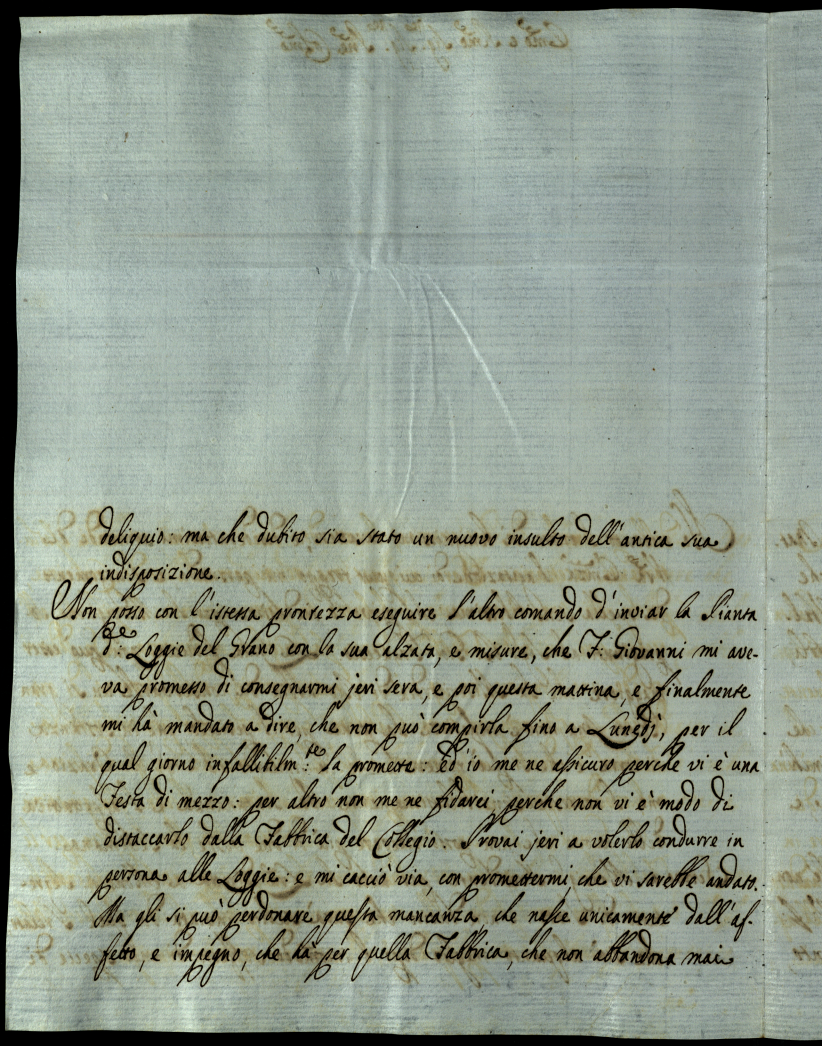 deliquio: ma che dubito sia stato un nuovo insulto dell'antica sua
indisposizione.
Non posso con l'istessa prontezza eseguire l'altro comando d'inviar la Pianta
d:e Loggie del Grano con la sua alzata, e misure, che F: Giovanni mi ave-
va promesso di consegnarmi jeri sera, e poi questa mattina, e finalmente
mi hà mandato a dire, che non può compirla fino a Lunedj, per il
qual giorno infallibilm:te la promette: ed io me ne assicuro perche vi è una
Festa di mezzo: per altro non me ne fidarei, perche non vi è modo di
distaccarlo dalla Fabbrica del Collegio. Provai jeri a volerlo condurre in
persona alle Loggie: e mi cacciò via, con promettermi, che vi sarebbe andato.
Ma gli si può perdonare questa mancanza, che nasce unicamente dall'af-
fetto, e impegno, che hà per quella Fabbrica, che non abbandona mai